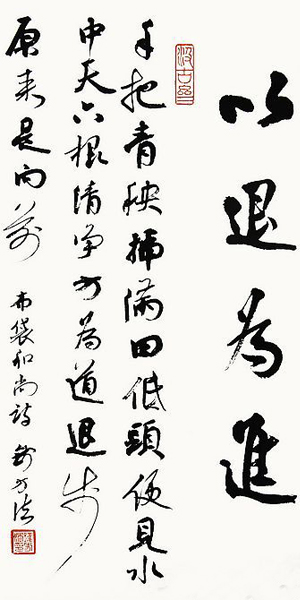 以退為進
手把青秧插滿田低頭便見水
中天六根清净方為道退步
原来是向前
布袋和尚詩